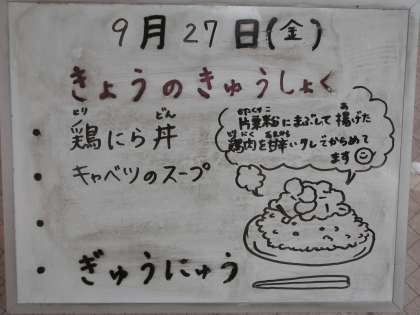 9月27日(金)
きょうのきゅうしょく
鶏にら丼
キャベツのスープ
ぎゅうにゅう
片栗粉にまぶして揚げた
鶏肉を甘辛いタレでからめて
ます